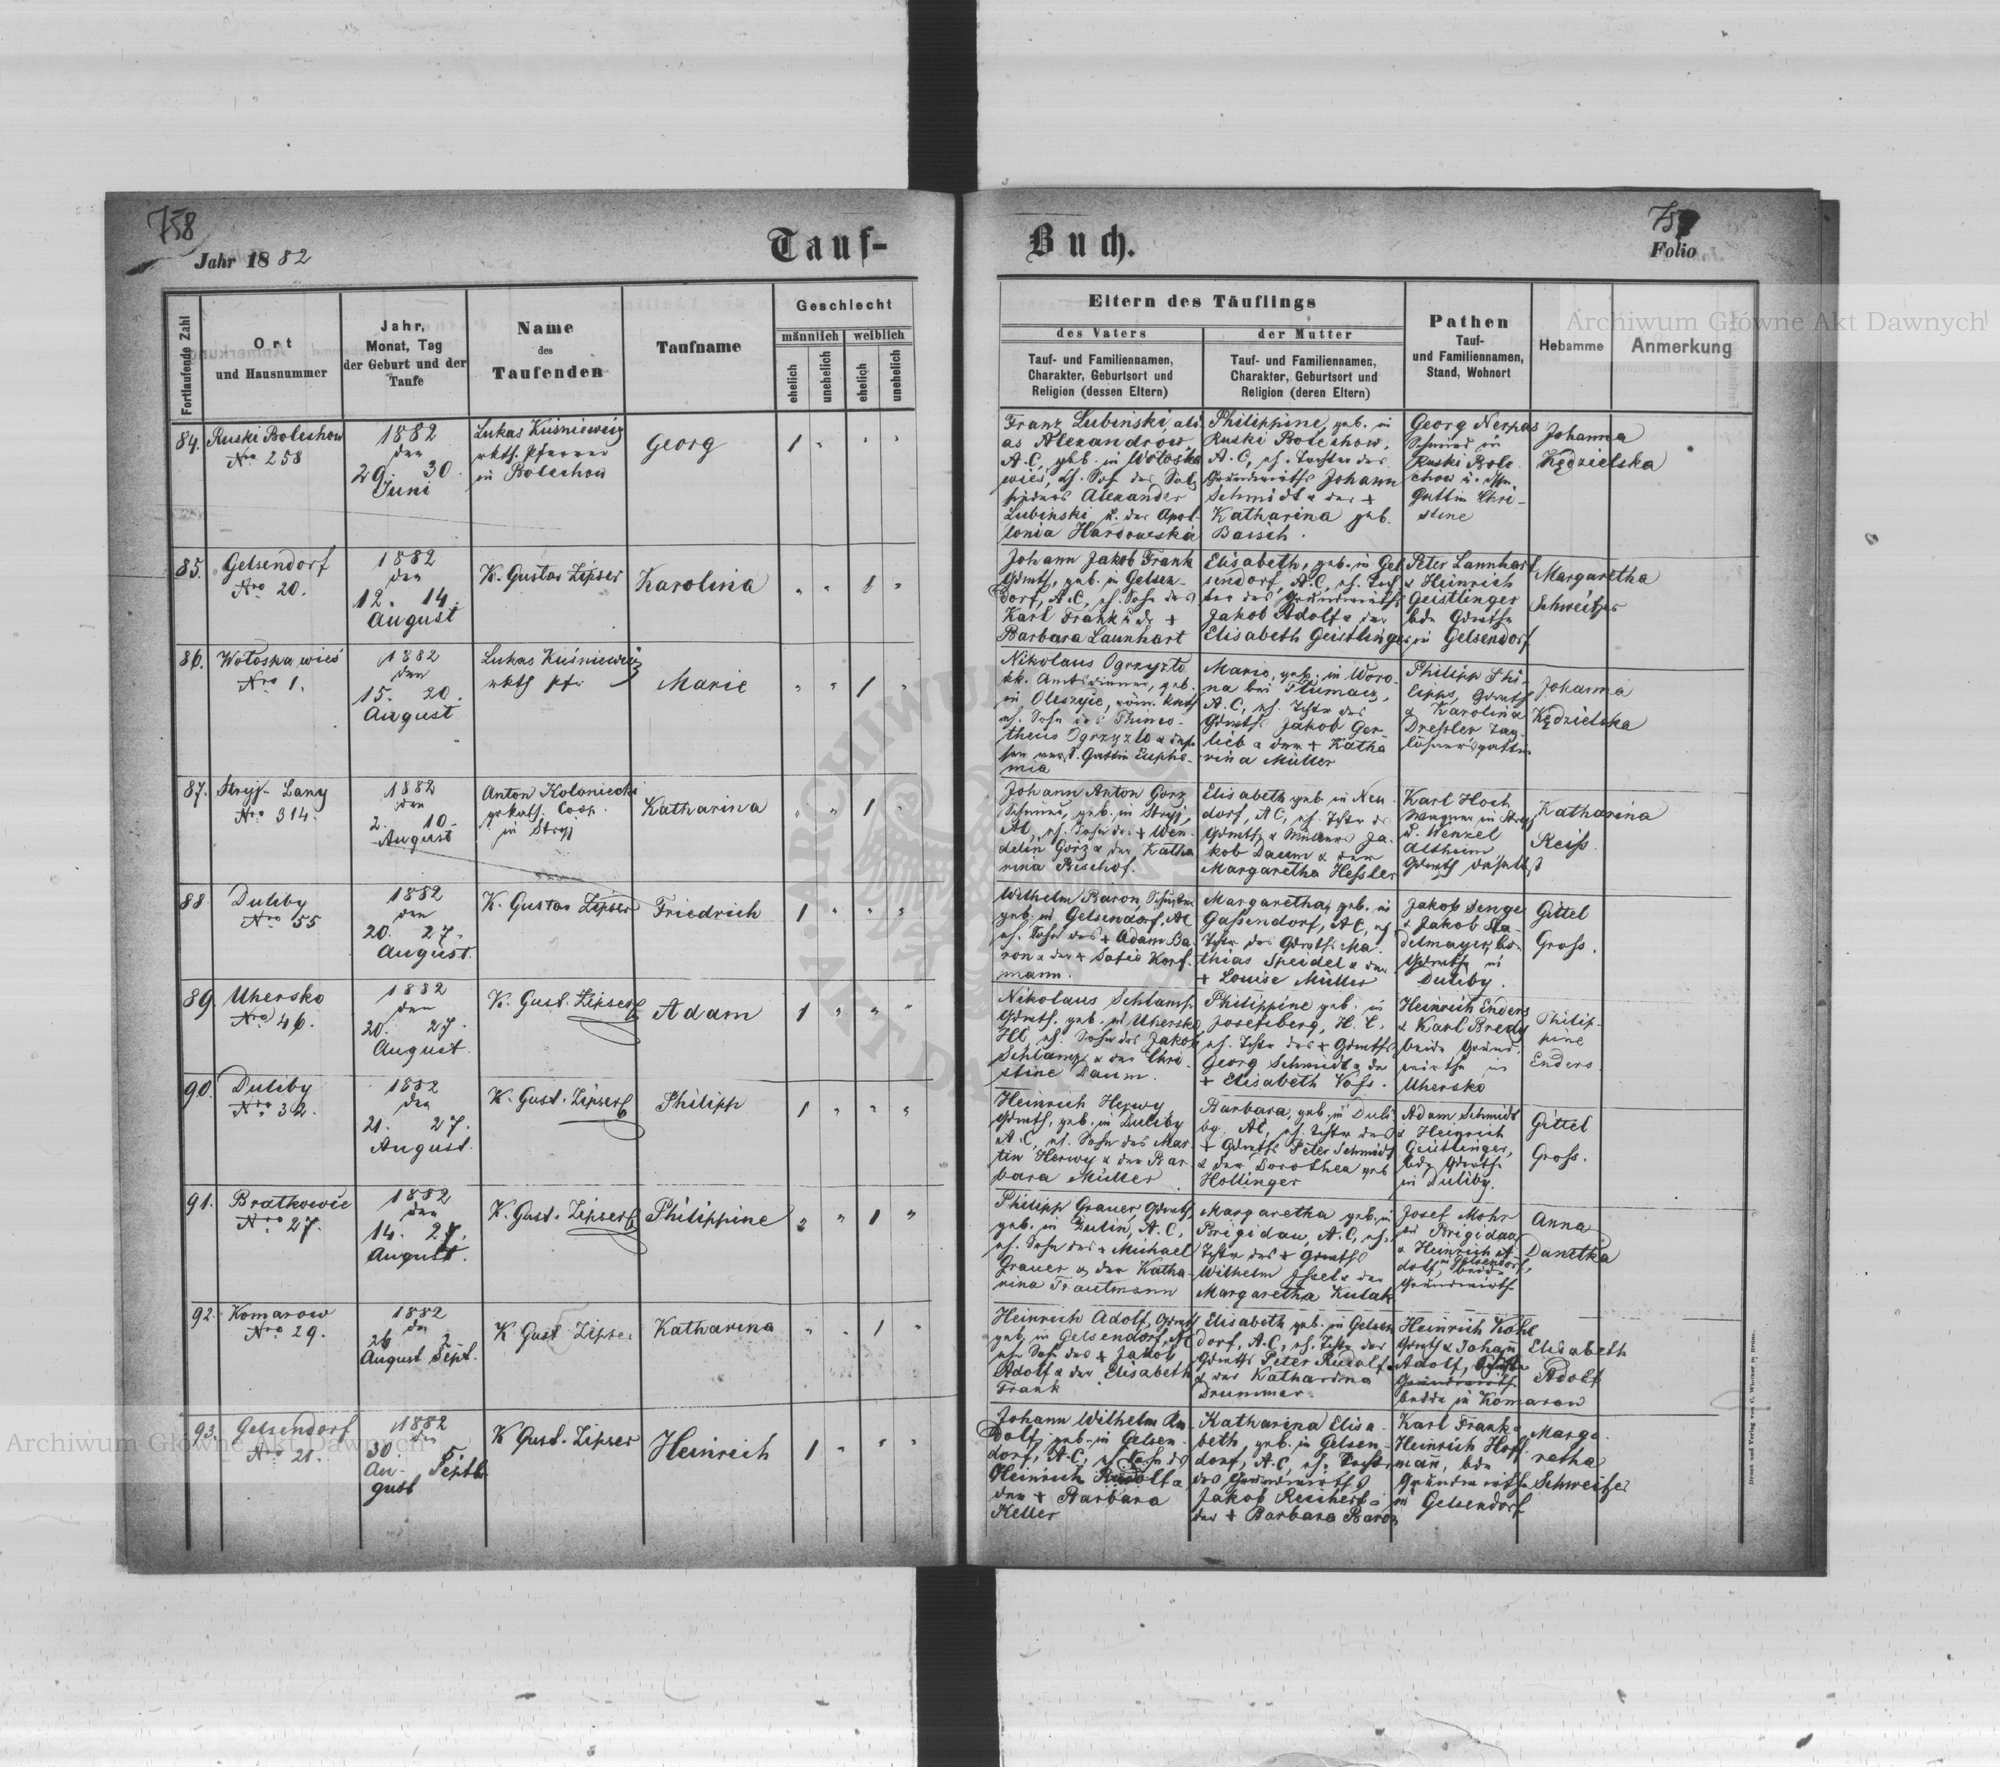 758
Jahr 1882
Tauf-
Buch.
759
Folio
Fortlaufende Zahl
Ort
und Hausnummer
Jahr,
Monat, Tag
der Geburt und der
Taufe
Name
des
Taufenden
Taufname
Geschlecht
männlich
weiblich
ehelich
unehelich
ehelich
unehelich
Eltern des Täuflings
des Vaters
der Mutter
Tauf- und Familiennamen,
Charakter, Geburtsort und
Religion (dessen Eltern)
Tauf- und Familiennamen,
Charakter, Geburtsort und
Religion (deren Eltern)
Pathen
Tauf-
und Familiennamen,
Stand, Wohnort
Hebamme
Anmerkung
84.
Ruski Bolechow
Nro 258
1882
den
29. 30.
Juni
Lukas Kuśniewicz
rkth. Pfarrer
in Bolechow
Georg
1 " " "
Franz Lubinski ali-
as Alexandrow,
A.C., geb. in Wołoska
wieś, eh. Sohn des
Alexander
Lubinski u. der Apol-
lonia Hardowska
Philippine, geb. in
Ruski Bolechow,
A.C., eh. Tochter des
Grundwirths Johann
Schmidt u der +
Katharina geb.
Baisch.
Georg Nerpas
Schmied in
Ruski Bole-
chow u.
Gattin Chri-
stine
Johanna
Kędzielska
85.
Gelsendorf
Nro 20.
1882
den
12. 14.
August
K. Gustav Zipser
Karolina
" " 1 "
Johann Jakob Frank
Gdwth, geb. in Gelsen-
dorf, A.C., eh. Sohn des
Karl Frank u dr +
Barbara Launhart
Elisabeth, geb. in Gel
sendorf, A.C., eh. Toch
ter des Grundwirths
Jakob Adolf u der
Elisabeth Geistlinger
Peter Lannhart
u Heinrich
Geistlinger
bde Gdwthe
in Gelsendorf
Margaretha
Schweitzer
86.
Wołoska wieś
Nro 1.
1882
den
15. 20.
August
Lukas Kuśniewicz
rkth Pfr
Marie
" " 1 "
Nikolaus Ogrzyzło
kk. Amtsdiener, geb.
in Oleszyce, röm. kath
eh. Sohn des Thimo-
theus Ogrzyzło u dess
sen Gattin Euphe-
mia
Marie, geb. in Woro-
na bei Tłumacz,
A.C., eh. Tchtr des
Gdwths Jakob Ger-
lieb u der + Katha
rina Müller
Philipp Phi-
lipps, Gdwth
u Karolina
Dressler Tag-
löhnersgattin
Johanna
Kędzielska
87.
Stryj- Lany
Nro 314.
1882
den
2. 10.
August
Anton Koloniecki
grkath. Coop.
in Stryj
Katharina
" " 1 "
Johann Anton Gorz
geb. in Stryj,
AC, eh. Sohn des + Wen-
delin Gorz u der Katha
rina Bischof.
Elisabeth geb. in Neu-
dorf, AC, eh. Tchtr des
Gdwths u Müllers Ja-
kob Daum u der
Margaretha Hessler
Karl Hoch
Wagner in Stryj
u. Wenzel
Altheim
Gdwth daselbst
Katharina
Reiss.
88
Duliby
Nro 55
1882
den
20. 27.
August.
K. Gustav Zipser
Friedrich
1 " " "
Wilhelm Baron, Schuster
geb. in Gelsendorf, AC
eh. Sohn des + Adam Ba-
ron u der + Sofie Korf-
mann.
Margaretha, geb. in
Gassendorf, AC, eh.
Tchtr des Gdwths Ma-
thias Speidel u der
+ Louise Müller
Jakob Senge
u Jakob Sta-
delmayer, bde
Gdwthe in
Duliby.
Gittel
Gross.
89.
Uhersko
Nro 46.
1882
den
20. 27.
August.
K. Gust. Zipser
Adam
1 " " "
Nikolaus Schlamp
Gdwth. geb. in Uhersko,
HC, eh. Sohn des Jakob
Schlamp u der Chri-
stine Daum.
Philippine geb. in
Josefsberg, H. C.
eh. Tchtr des + Gdwths
Georg Schmidt u der
+ Elisabeth Voss.
Heinrich Enders
u Karl Bredy
beide Grund-
wirthe in
Uhersko
Philip-
pine
Enders
90.
Duliby
Nro 32.
1882
den
21. 27.
August.
K. Gust. Zipser
Philipp
1 " " "
Heinrich Herwy
Gdwth, geb. in Duliby
A.C, eh. Sohn des Mar-
tin Herwy u der Bar-
bara Müller
Barbara, geb. in Duli
by. AC, eh. Tchtr des
+ Gdwths Peter Schmidt
u der Dorothea geb
Hollinger
Adam Schmidt
u Heinrich
Geistlinger,
bde Gdwthe
in Duliby.
Gittel
Gross.
91.
Bratkowce
Nro 27.
1882
den
14. 27.
August.
K. Gust. Zipser
Philippine
" " 1 "
Philipp Grauer Gdwth
geb. in Zulin, A.C.
eh. Sohn des + Michael
Grauer u der Katha-
rina Trautmann
Margaretha geb. in
Brigidau, A.C, eh.
Tchtr des + Gdwths
Wilhelm Issel u der
Margaretha Kulak
Josef Mohr
in Brigidau
u Heinrich A-
dolf, in Gelsendorf,
beide
Grundwirthe
Anna
Danetka
92.
Komarow
Nro 29.
1882
den
26 2
August Sept.
K. Gust Zipser
Katharina
" " 1 "
Heinrich Adolf, Gdwth
geb. in Gelsendorf, AC
eh. Sohn des + Jakob
Adolf u der Elisabeth
Frank
Elisabeth geb. in Gelsen
dorf, A.C, eh. Tchtr des
Gdwths Peter Rudolf
u der Katharina
Drummer
Heinrich Kohl
Gdwth u Johan
Adolf,
Grundwirth
beide in Komarow
Elisabeth
Adolf
93.
Gelsendorf
Nro 21.
1882
den
30. 5
Au- Septb.
gust
K. Gust. Zipser
Heinrich
1 " " "
Johann Wilhelm Ru
dolf, geb. in Gelsen-
dorf, A.C, eh Sohn ds
Heinrich Rudolf u
der + Barbara
Keller
Katharina Elisa-
beth, geb. in Gelsen-
dorf, A.C, eh. Tochter
des Grundwirths
Jakob Reichert u
der + Barbara Baron
Karl Frank u
Heinrich Hoff-
man, bde
Grundwirthe
in Gelsendorf
Marga-
retha
Schweitzer
Archiwum Główne Akt Dawnych
Archiwum Główne Akt Dawnych